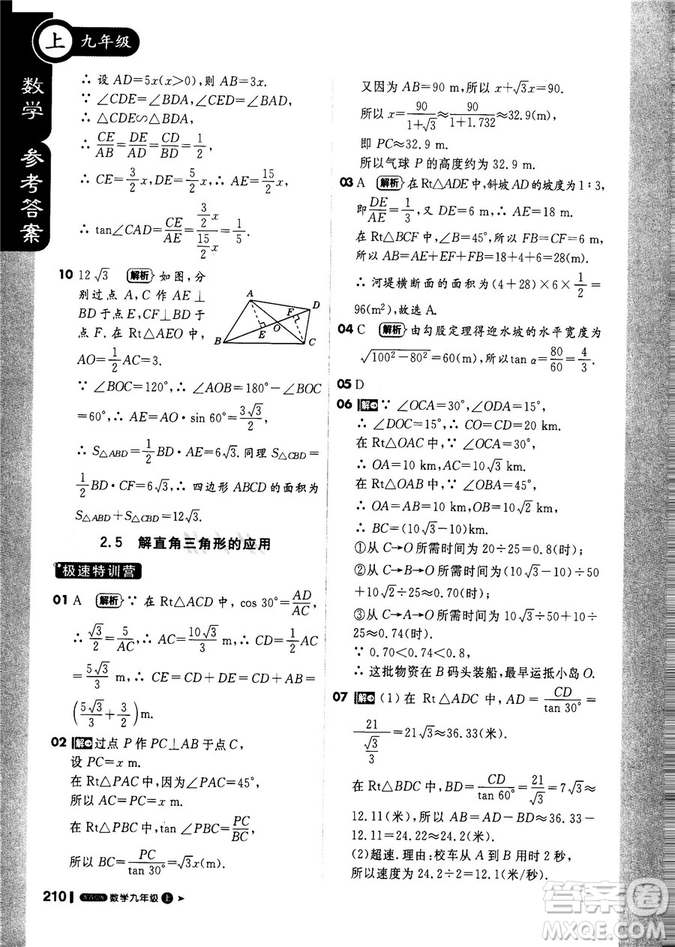 上 九年级
数学 参考答案
∴ 设 AD=5x(x>0),则 AB=3x.
∵ ∠CDE=∠BDA,∠CED=∠BAD,
∴ △CDE∽△BDA,
∴ CE/AB=DE/AD=CD/BD=1/2
∴ CE=3/2x,DE=5/2x,∴ AE=15/2x
∴ tan∠CAD=CE/AE=(3/2)/(15/2)=1/5
10 12√3 解析 如图,分
别过点 A,C 作 AE⊥
BD于点 E,CF⊥BD于
点 F.在 Rt△AEO 中,
AO=1/2AC=3.
A
D
F
O
E
B
C
∵ ∠BOC=120°,∴ ∠AOB=180°-∠BOC
=60°,∴ AE=AO·sin 60°=3√3/2.
∴ S△ABD=1/2BD·AE=6√3.同理 S△CBD=
1/2BD·CF=6√3,∴ 四边形 ABCD 的面积为
S△ABD+S△CBD=12√3.
2.5 解直角三角形的应用
极速特训营
01 A 解析 ∵ 在 Rt△ACD 中,cos 30°=AD/AC,
∴ √3/2=5/AC,∴ AC=10√3/3 m,∴ CD=1/2AC=
5√3/3 m,∴ CE=CD+DE=CD+AB=
(5√3/3+3/2) m.
02 解 过点 P 作 PC⊥AB 于点 C,
设 PC=x m.
在 Rt△PAC 中,因为∠PAC=45°,
所以 AC=PC=x m.
在 Rt△PBC 中,tan∠PBC=PC/BC,
所以 BC=PC/tan 30°=√3x(m).
210 数学九年级 上
又因为 AB=90 m,所以 x+√3x=90.
所以 x=90/(1+√3)≈90/(1+1.732)≈32.9(m).
即 PC≈32.9 m.
所以气球 P 的高度约为 32.9 m.
03 A 解析 在 Rt△ADE 中,斜坡 AD的坡度为1∶3,
即 DE/AE=1/3,又∵ DE=6,∴ AE=18.
在 Rt△BCF 中,∵ ∠B=45°,∴ BF=CF=6.
∴ AB=AE+EF+FB=18+4+6=28(m).
∴ 河堤横断面的面积为 (4+28)×6×1/2=
96(m²).故选 A.
04 C 解析 由勾股定理得迎水坡的水平宽度为
√100²-80²=60(m),所以tan α=80/60=4/3.
05 D
06 解 ∵ ∠OCA=30°,∠ODA=15°,
∴ ∠DOC=15°,∴ CO=CD=20.
在 Rt△OAC 中,∵ ∠OCA=30°,
∴ OA=10 km,AC=10√3 km.
在 Rt△OAB 中,∵ ∠OBA=45°,
∴ OA=AB=10 km,OB=10√2 km,
∴ BC=(10√3-10) km.
①从 C→O 所需时间为 20÷25=0.8(时);
②从 C→B→O 所需时间为(10√3-10)÷50+
10√2÷25≈0.70(时);
③从 C→A→O 所需时间为 10√3÷50+10÷
25≈0.74(时).
∵ 0.70<0.74<0.8,
∴ 这批物资在 B 码头装船,最早运抵小岛 O.
07 解 (1) 在 Rt△ADC 中,AD=CD/tan 30°=
21/(√3/3)=21√3≈36.33(米).
在 Rt△BDC 中,BD=CD/tan 60°=21/√3=7√3≈
12.11(米),所以 AB=AD-BD≈36.33-
12.11≈24.2(米).
(2)超速.理由:校车从 A 到 B 用时 2 秒,
所以速度约为 24.2÷2=12.1(米/秒).
答案圈